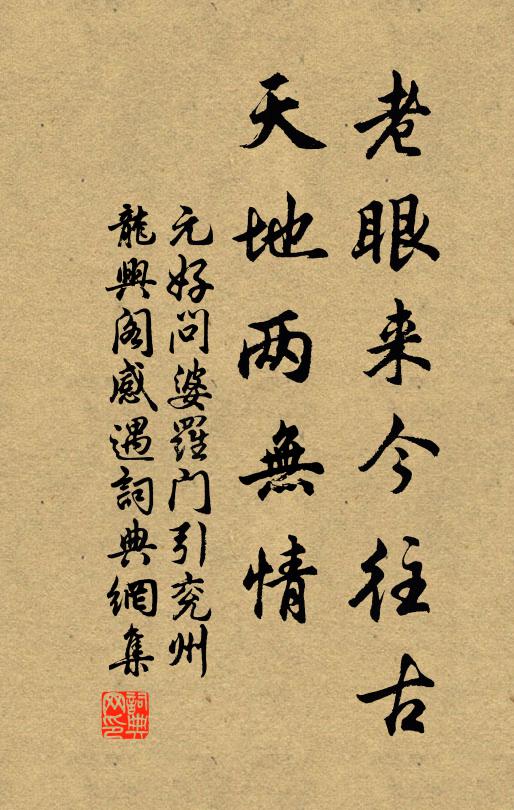 老眼来今往古
天地两無情
元好问婆羅门引兖州
龍興阁感遇詞典網集
詞典
网印